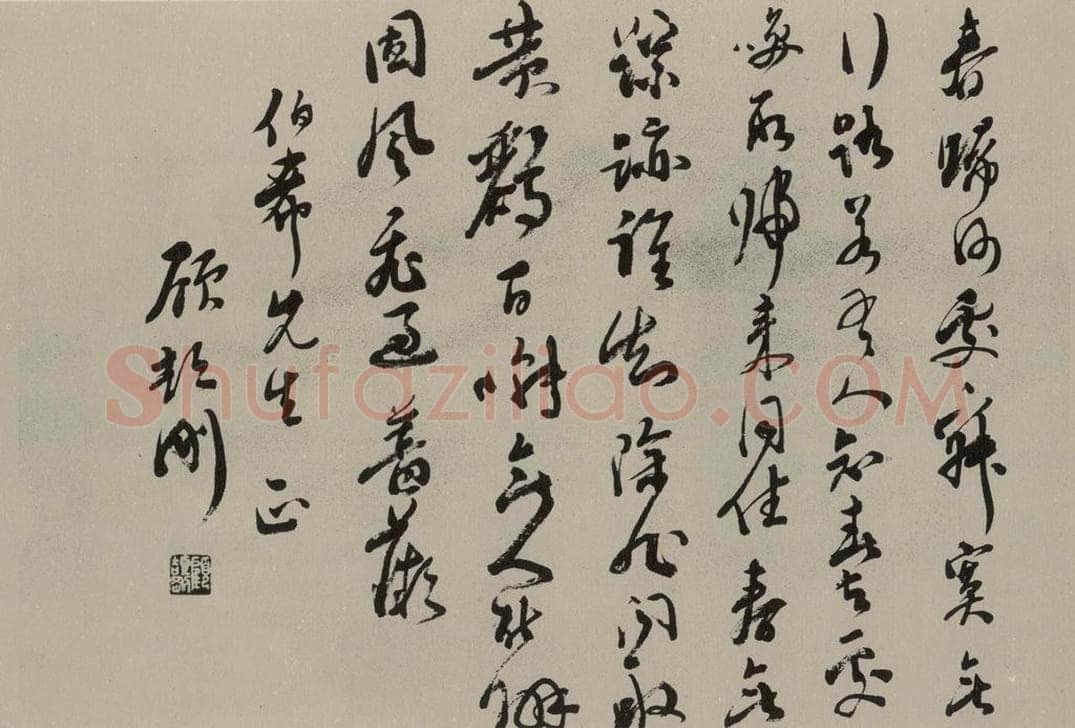 春歸何處寂寞無
行路若有人知春去處
喚取歸來同住春無
踪跡誰知除非問取
黃鸝百囀無人能解
因風飛過薔薇
伯希先生正
顧頡剛
顧頡剛
Shufaziliao.COM